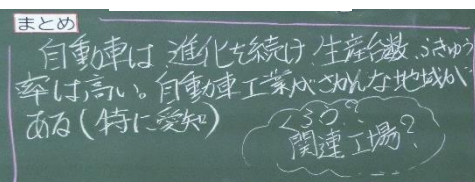 まとめ
自動車は進化を続け、生産台数、ふきゅう
率は高い。自動車工業がさかんな地域が
ある(特に愛知)
くふう?
関連工場?